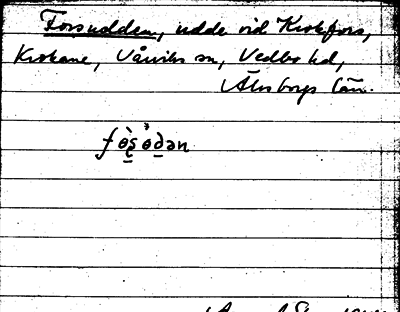 Forsudden, udde vid Krokfors,
Krokane, Vårviks sn, Vedbo hd,
Älvsborgs län.
fɵ̀ʂɵ̀dən